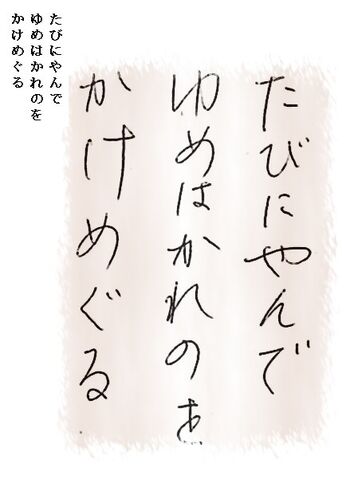 たびにやんで
ゆめはかれのを
かけめぐる
たびにやんで
ゆめはかれのを
かけめぐる